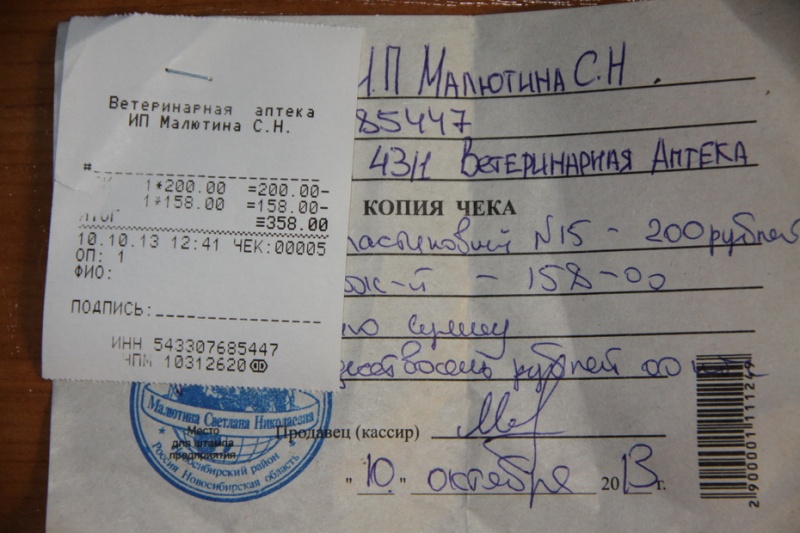 Ветеринарная аптека
ИП Малютина С.Н.
#
1*200.00 =200.00-
1*158.00 =158.00-
ИТОГ ≡358.00
10.10.13 12:41 ЧЕК:00005
ОП: 1
ФИО:
ПОДПИСЬ:
ИНН 543307685447
ЧПМ 10312620
ИП Малютина С.Н.
85447
43/1 Ветеринарная Аптека
КОПИЯ ЧЕКА
N15 - 200 рублей
- 158-00
сумму
рублей 00
Малютина Светлана Николаевна
Место
для штампа
предприятия
Новосибирский район
Россия Новосибирская область
Продавец (кассир)
"10" октября 2013 г.
2900001111249